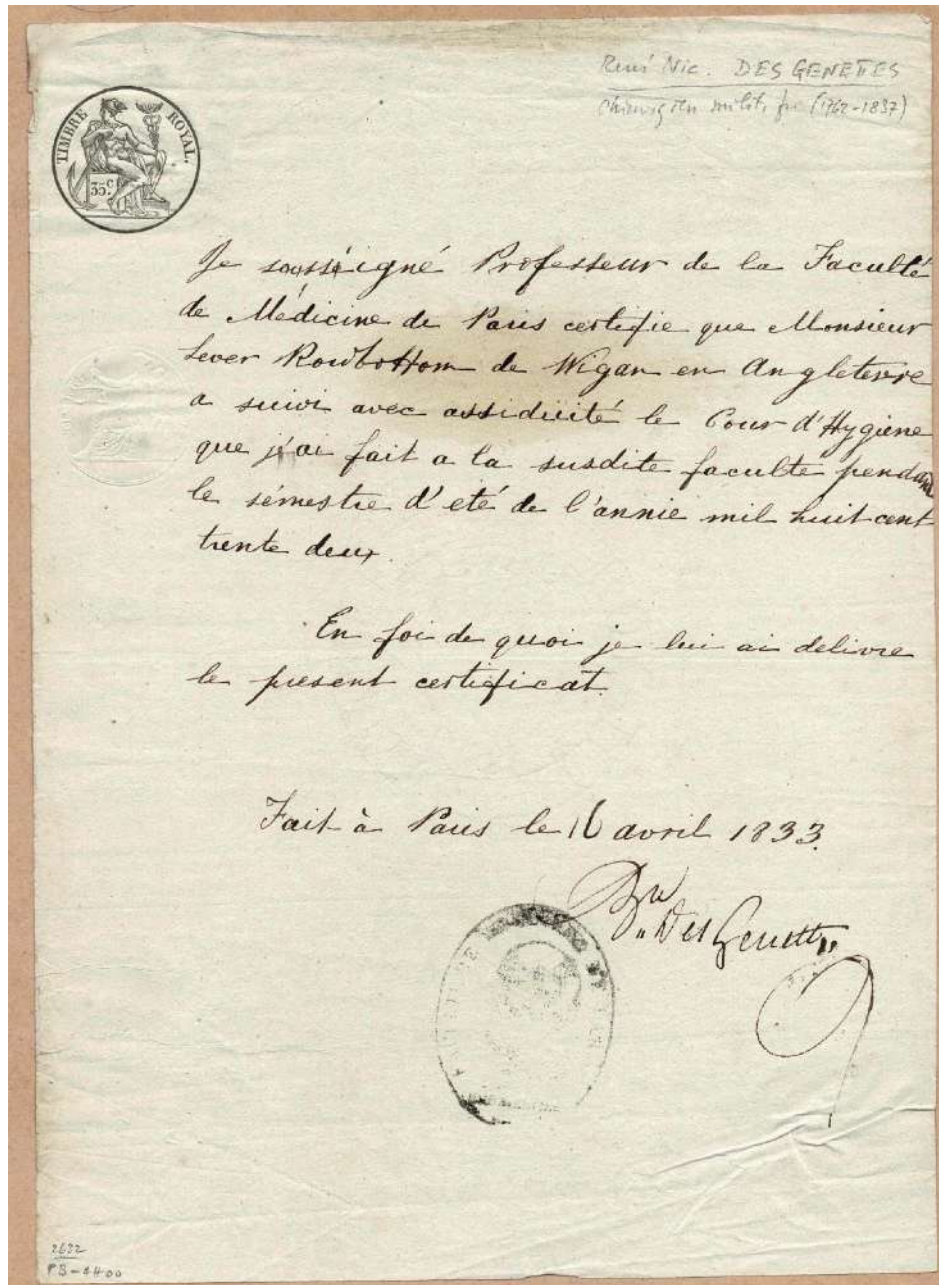 René Nic. DES GENETTES
milit. fr. (1762-1837)
TIMBRE ROYAL.
35 c.
Je soussigné Professeur de la Faculté
de Médicine de Paris certifie que Monsieur
Lever Rowbottom de Wigan en Angleterre
a suivi avec assiduité le Cour d'Hygiene
que j'ai fait a la susdite faculte pendant
le sémestre d'eté de l'annie mil huit cent
trente deux.
En foi de quoi je lui ai delivre
le present certificat.
Fait à Paris le 16 avril 1833.
Bon
Des Genettes
2622